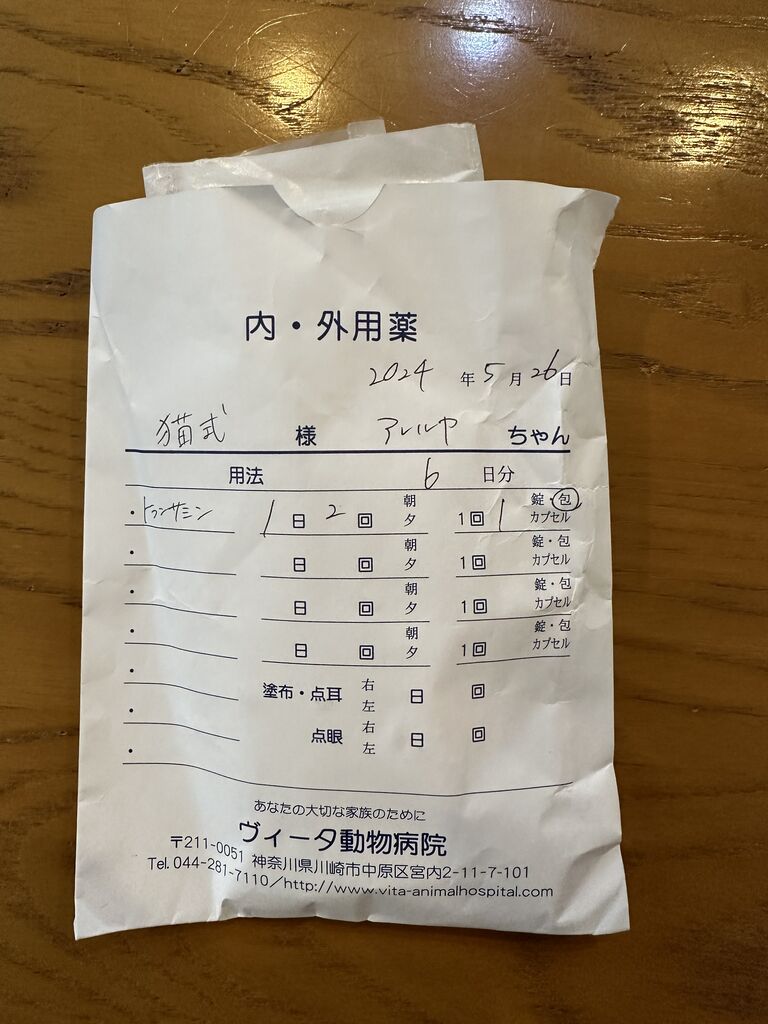 内・外用薬
2024 年 5 月 26 日
猫式 様 アレルヤ ちゃん
用法 6 日分
・トランサミン 1 日 2 回 朝 夕 1回 1 錠・包 カプセル
・ 日 回 朝 夕 1回 錠・包 カプセル
・ 日 回 朝 夕 1回 錠・包 カプセル
・ 日 回 朝 夕 1回 錠・包 カプセル
・ 塗布・点耳 右 左 日 回
・ 点眼 右 左 日 回
・
あなたの大切な家族のために
ヴィータ動物病院
〒211-0051 神奈川県川崎市中原区宮内2-11-7-101
Tel.044-281-7110/http://www.vita-animalhospital.com